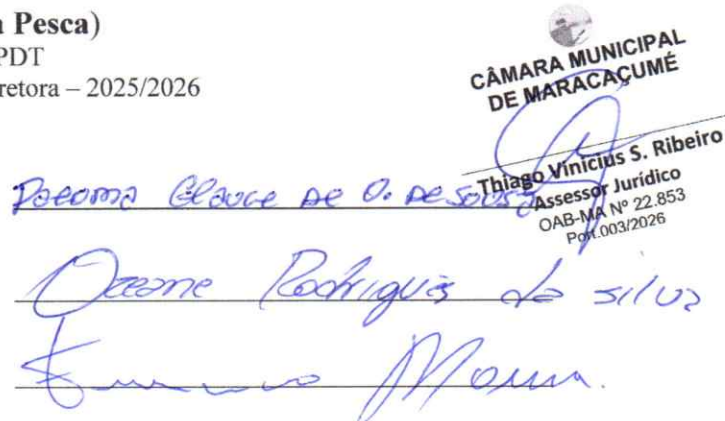 a Pesca)
PDT
retora – 2025/2026
CÂMARA MUNICIPAL
DE MARACAÇUMÉ
Thiago Vinicius S. Ribeiro
Assessor Jurídico
OAB-MA Nº 22.853
Port.003/2026
Glauce De O. De Sousa
Ozeane Rodrigues da silva
Moura